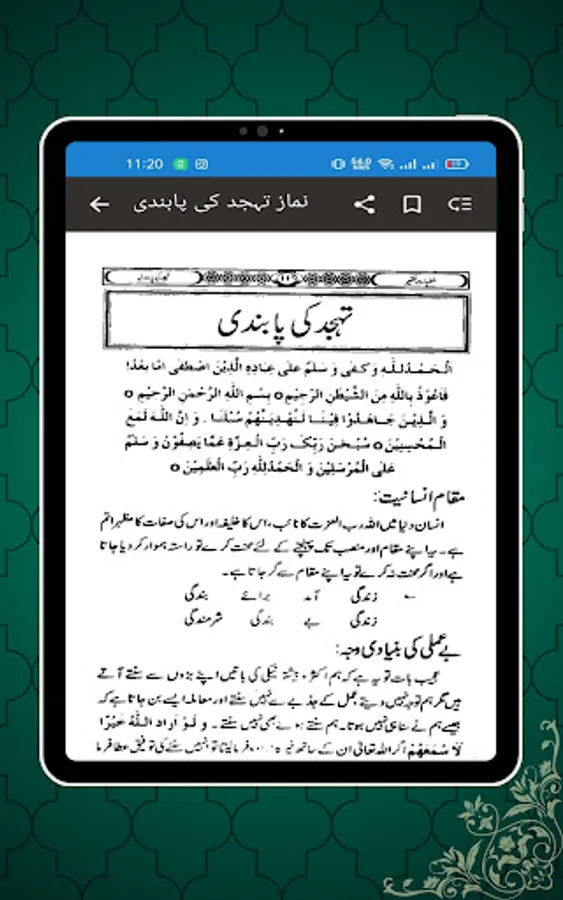 11:20
54.0
نماز تہجد کی پابندی
تہجد کی پابندی
اَلْحَمْدُلِلّٰهِ وَكَفٰى وَ سَلٰمٌ عَلٰى عِبَادِهِ الَّذِيْنَ اصْطَفٰى اَمَّا بَعْدُ!
فَاَعُوْذُ بِاللّٰهِ مِنَ الشَّيْطٰنِ الرَّجِيْمِ ○ بِسْمِ اللّٰهِ الرَّحْمٰنِ الرَّحِيْمِ ○
وَ الَّذِيْنَ جَاهَدُوْا فِيْنَا لَنَهْدِيَنَّهُمْ سُبُلَنَا . وَ اِنَّ اللّٰهَ لَمَعَ
الْمُحْسِنِيْنَ ○ سُبْحٰنَ رَبِّكَ رَبِّ الْعِزَّةِ عَمَّا يَصِفُوْنَ وَ سَلٰمٌ
عَلَى الْمُرْسَلِيْنَ وَ الْحَمْدُلِلّٰهِ رَبِّ الْعٰلَمِيْنَ ○
مقام انسانیت:
انسان دنیا میں اللہ رب العزت کا نائب، اس کا خلیفہ اور اس کی صفات کا مظہر اتم
ہے۔ یہ اپنے مقام اور منصب تک پہنچنے کے لئے محنت کرے تو راستہ ہموار کر دیا جاتا
ہے اور اگر محنت نہ کرے تو یہ اپنے مقام سے گر جاتا ہے۔
زندگی آمد برائے بندگی
زندگی بے بندگی شرمندگی
بے عملی کی بنیادی وجہ:
عجیب بات تو یہ ہے کہ ہم اکثر و بیشتر نیکی کی باتیں اپنے بڑوں سے سنتے آتے
ہیں مگر ہم توجہ نہیں دیتے عمل کے جذبے سے نہیں سنتے اور معاملہ ایسے بن جاتا ہے کہ
جیسے ہم نے سنا ہی نہیں ہوتا۔ ہم سنتے ہوئے بھی نہیں سنتے۔ وَ لَوْ اَرَادَ اللّٰهُ خَيْرًا
لَاَ سْمَعَهُمْ اگر اللہ تعالیٰ ان کے ساتھ خیر کا فرمالیتا تو انہیں سننے کی توفیق عطا فرما